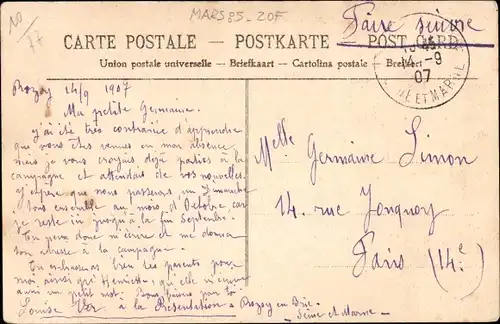 10
77
MARS 85 - 20F
Faire suivre
CARTE POSTALE - POSTKARTE - POST CARD
Union postale universelle - Briefkaart - Cartolina postale -
14 -9
07
ET MARNE
Rozoy 14/9 1907
Ma petite Germaine.
j'ai été très contrariée d'apprendre
que vous êtes venues en mon absence
mais je vous croyais déjà parties à la
campagne et attendais de vos nouvelles.
J'espère que nous passerons un Dimanche
tous ensemble au mois d'Octobre car
je reste ici jusqu'à la fin Septembre.
Tu peux donc m'écrire et me donner
ton adresse à la campagne.
Tu embrasseras bien tes parents pour
moi ainsi qu'Henriette, qu'elle m'écrive
aussi un petit mot. Bons baisers pour toi
Louise à la Présentation à Rozoy en Brie
Seine et Marne
Melle Germaine Simon
14. rue Jonquoy
Paris (14e)